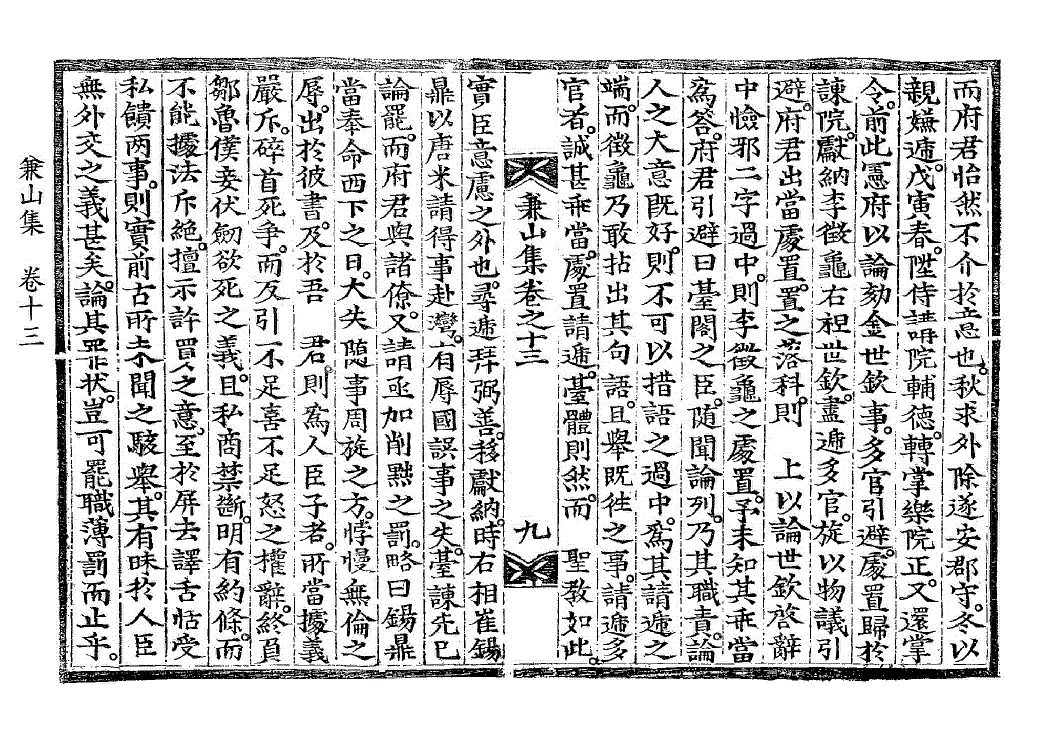 而府君怡然不介於意也。秋求外除遂安郡守。冬以
親嫌遞。戊寅春。陞侍講。呼院輔德。轉掌樂院正。又還掌
令。前此憲府以論劾金世欽事。多官引避。處置歸於
諫院。獻納李徵龜右袒世欽。盡遞多官。旋以物議引
避。府君出當處置。置之落科。則 上以論世欽啓辭
中憸邪二字過中。則李徵龜之處置。予未知其乖當
爲答。府君引避曰臺閣之臣。随聞論列。乃其職責。論
人之大意旣好。則不可以措語之過中。爲其請遞之
端。而徵龜乃敢拈出其句語。且擧旣徃之事。請遞多
官者。誠甚乖當。處置請遞。臺體則然。而 聖敎如此。
兼山集卷之十三 九
實臣意慮之外也。尋遞拜弼善。移獻納。時右相崔錫
鼎以唐米請得事赴灣。有辱國誤事之失。臺諫先已
論罷。而府君與諸僚。又請亟加削黜之罰。略曰錫鼎
當奉命西下之日。大失隨事周旋之方。悖慢無倫之
辱。出於彼書。及於吾 君。則爲人臣子者。所當據義
嚴斥。碎首死爭。而反引一不足喜不足怒之權辭。終負
鄒魯僕妾伏劒欲死之義。且私商禁斷。明有約條。而
不能據法斥絶。擅示許買之意。至於屏去譯舌。恬受
私饋两事。則實前古所未聞之駭擧。其有昧於人臣
無外交之義甚矣。論其罪状。豈可罷職薄罰而止乎。
兼山集 卷十三